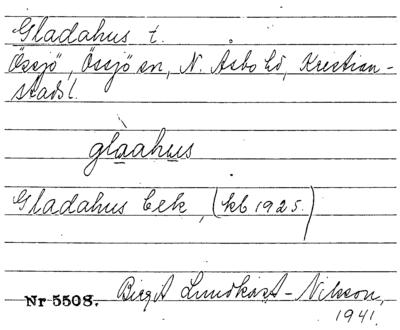 Gladahus t.
Össjö, Össjö sn, N. Åsbo hd, Kristian-
stads l.
glaahus
Gladahus bek, (kb 1925.)
Nr 5508. Birgit Lundkvist-Nilsson,
1941.